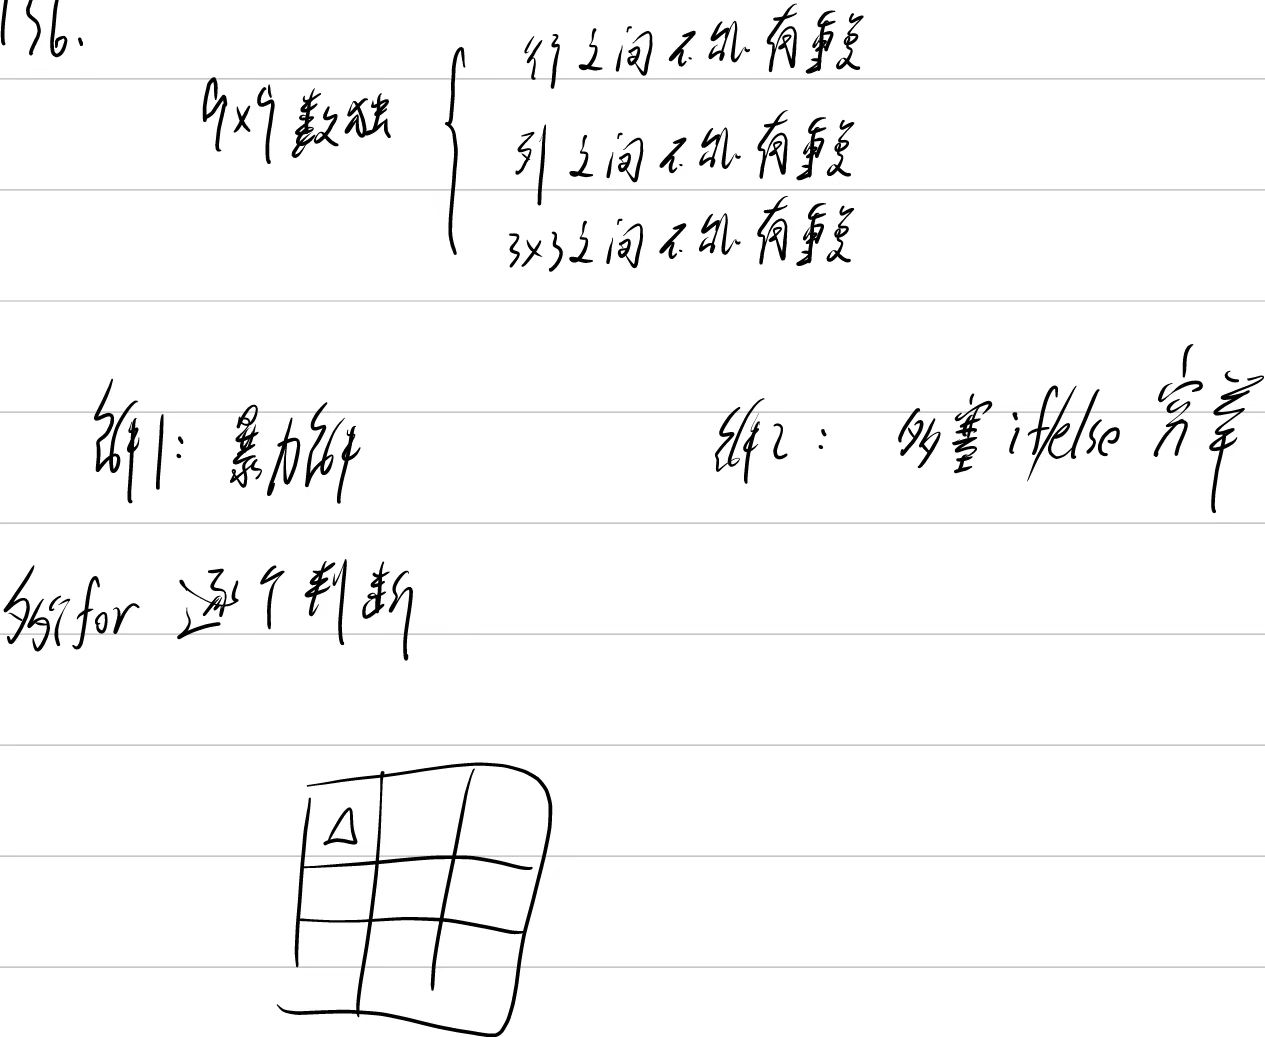 136.
行之间不能有重复
9x9数独
列之间不能有重复
3x3之间不能有重复
解1: 暴力解
解2: 多塞if/else 完善
多行for 逐个判断